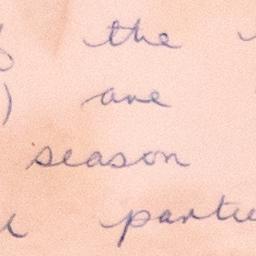 the
) are
season
partie